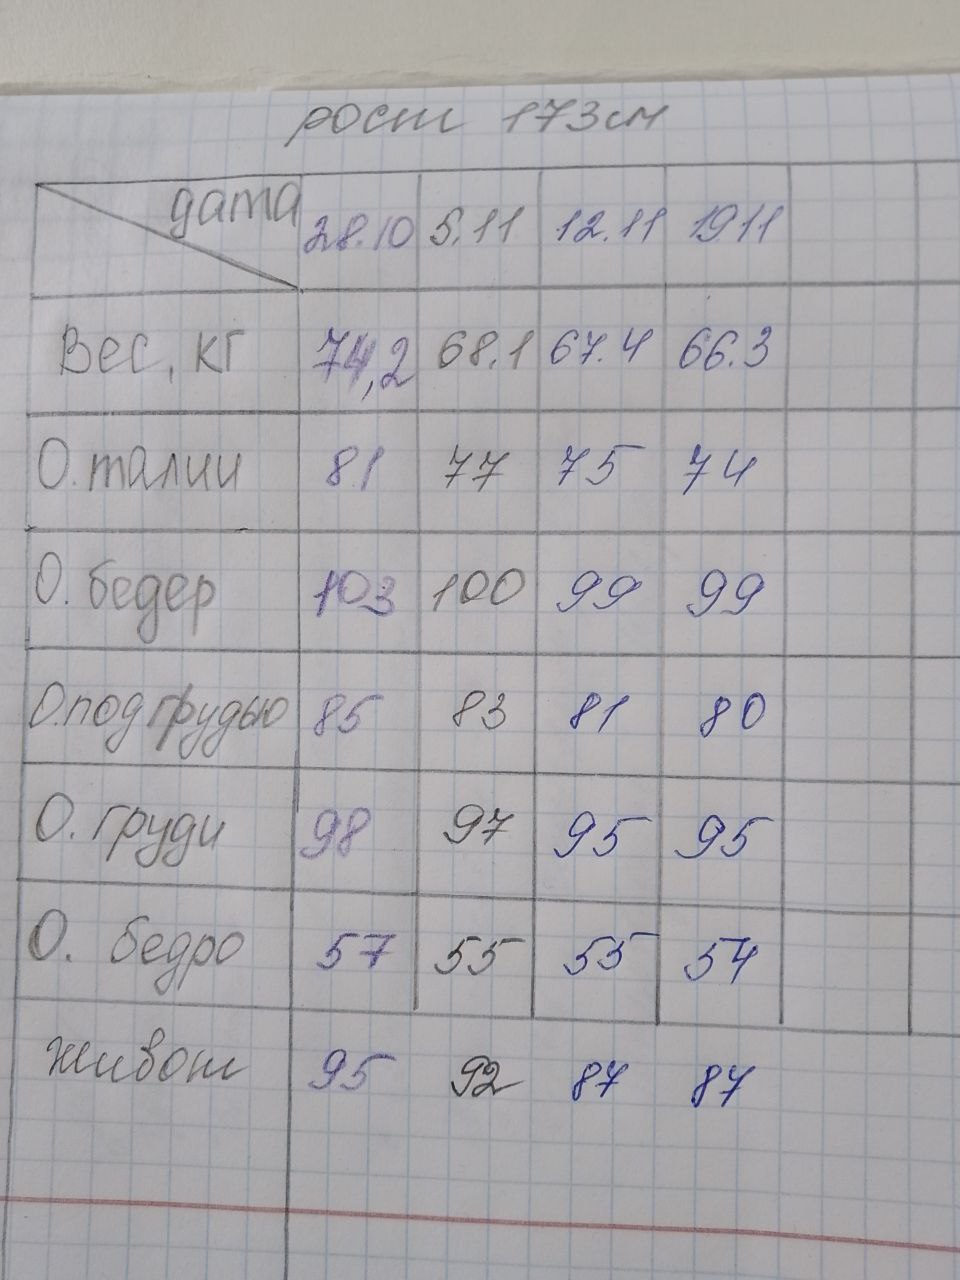 рост 173см
дата 28.10 5.11 12.11 19.11
Вес, кг 74,2 68.1 67.4 66.3
О. талии 81 77 75 74
О. бедер 103 100 99 99
О. под грудью 85 83 81 80
О. груди 98 97 95 95
О. бедро 57 55 55 54
живот 95 92 87 87